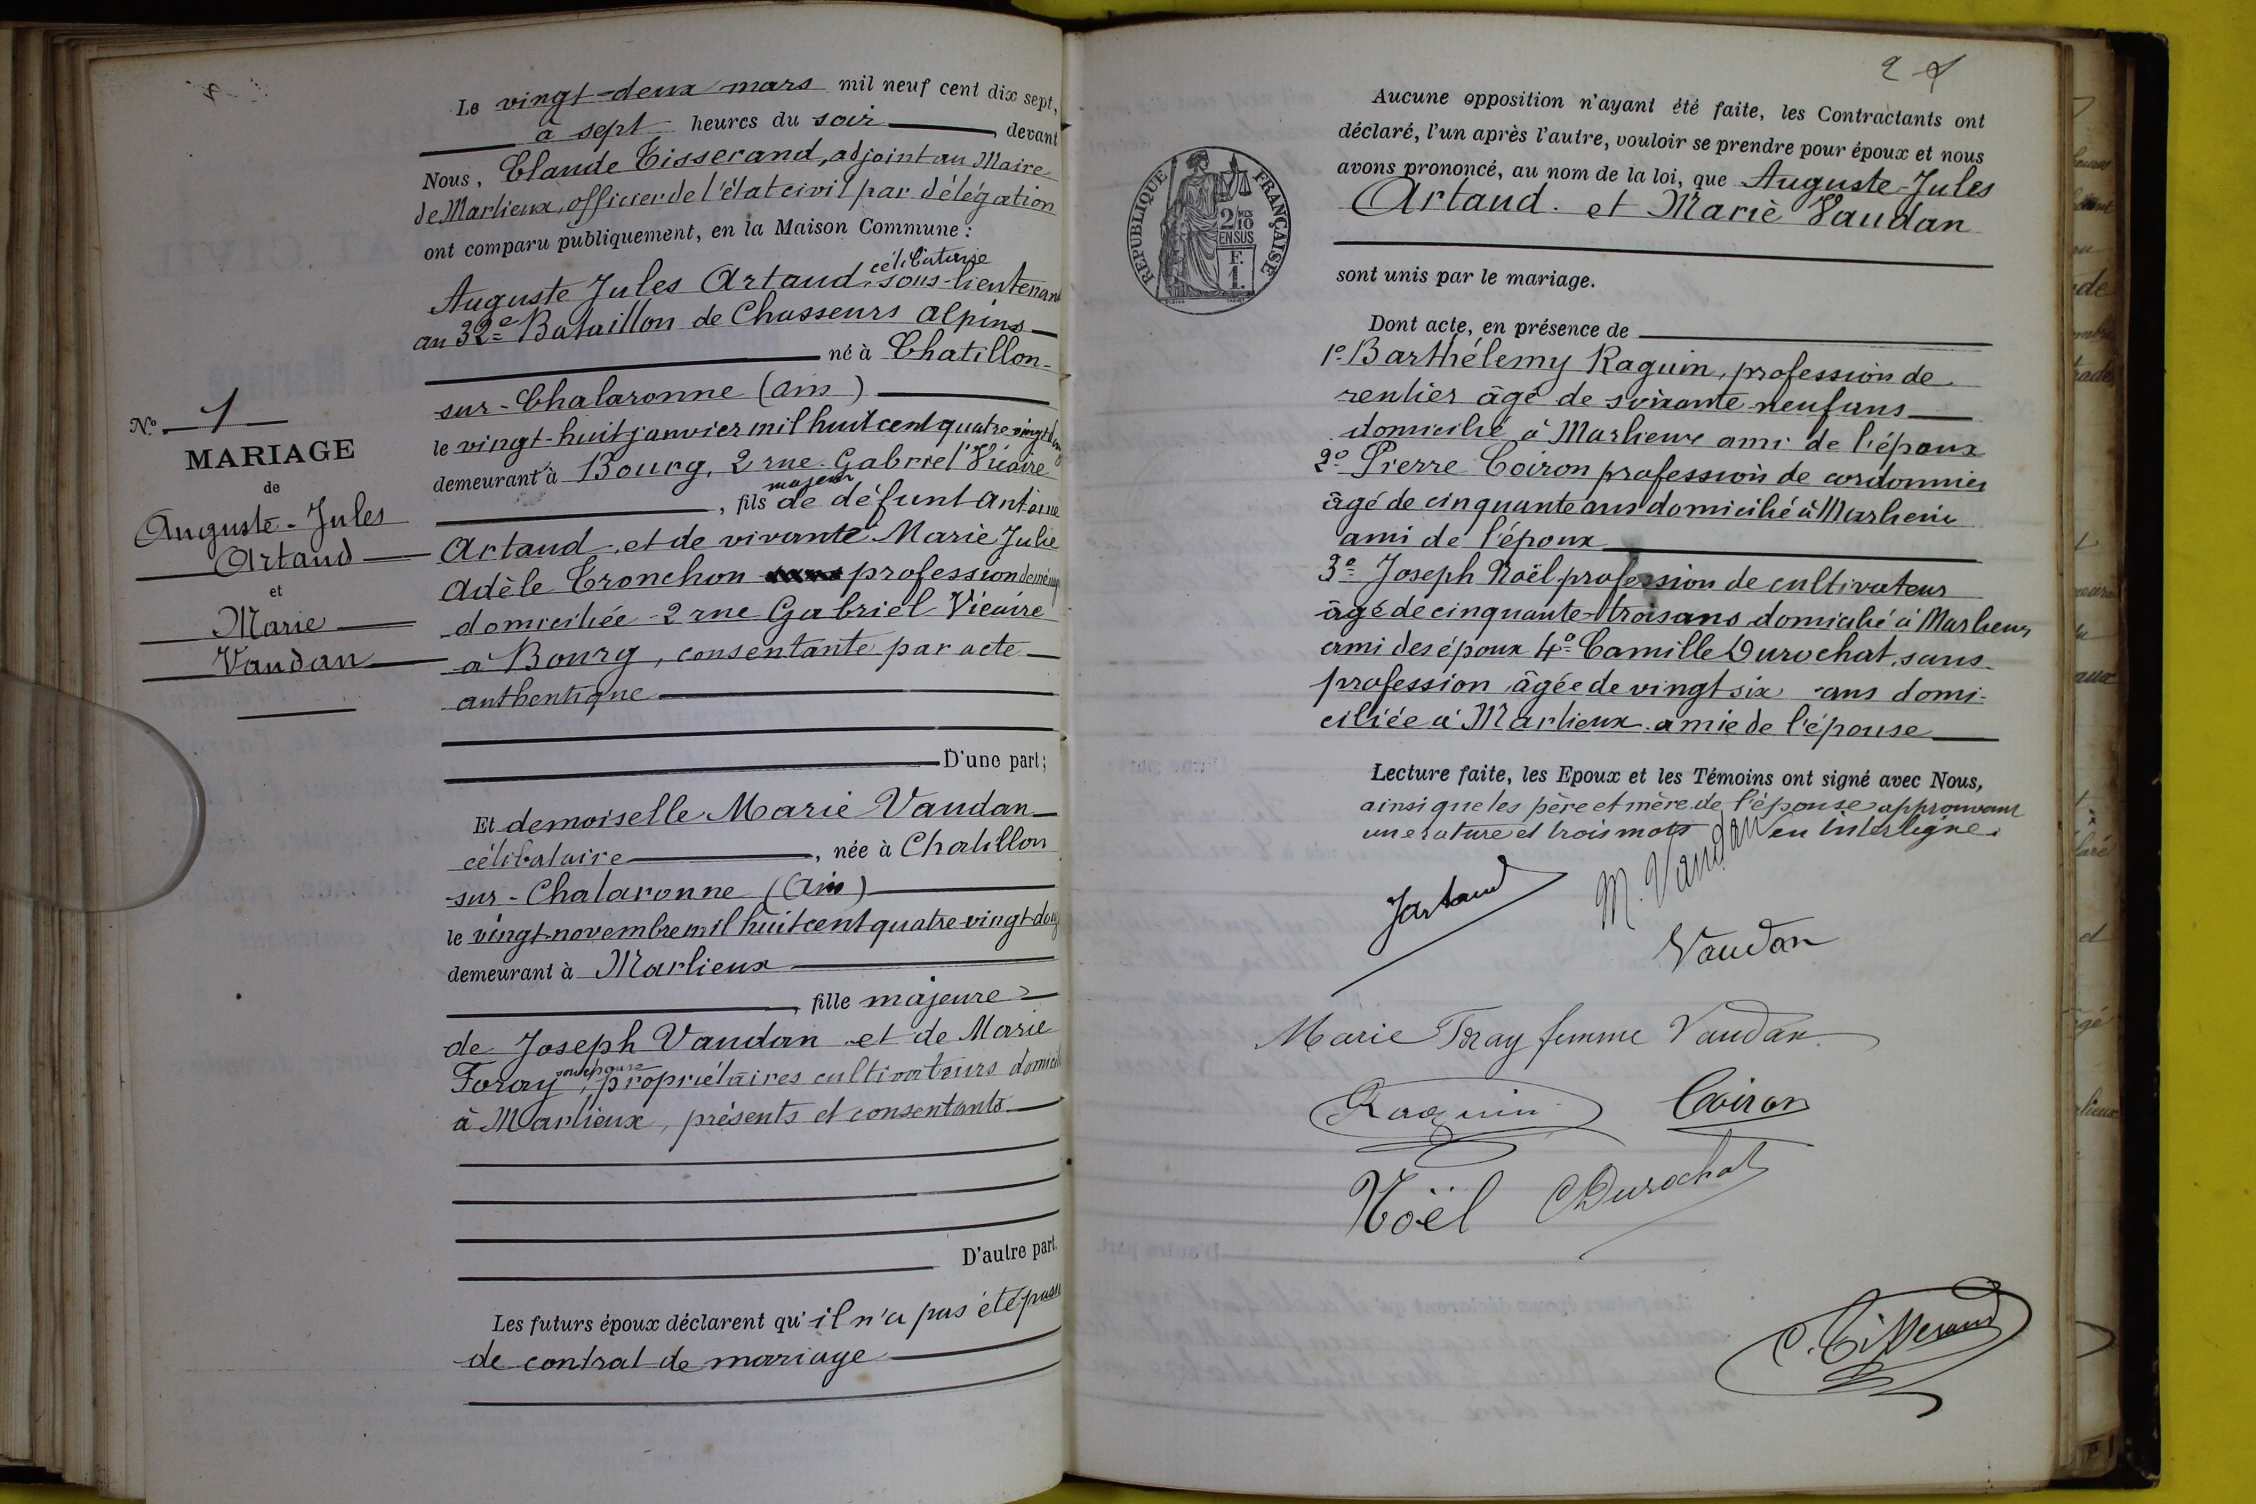 Le vingt-deux mars mil neuf cent dix sept,
à sept heures du soir, devant
Nous, Claude Tisserand, adjoint au Maire
de Marlieux, officier de l'état civil par délégation
ont comparu publiquement, en la Maison Commune :
célibataire
Auguste Jules Artaud, sous-lieutenant
au 32e Bataillon de Chasseurs alpins
né à Chatillon-
sur-Chalaronne (Ain)
le vingt-huit janvier mil huit cent quatre vingt
demeurant à Bourg, 2 rue Gabriel Vicaire
majeur
, fils de défunt Antoine
Artaud, et de vivante Marie Julie
Adèle Tronchon profession de ménag
domiciliée 2 rue Gabriel Vicaire
à Bourg, consentante par acte
authentique
D'une part ;
N° 1
MARIAGE
de
Auguste-Jules
Artaud
et
Marie
Vaudan
Et demoiselle Marie Vaudan
célibataire, née à Chatillon
sur-Chalaronne (Ain)
le vingt novembre mil huit cent quatre-vingt-douz
demeurant à Marlieux
, fille majeure
de Joseph Vaudan et de Marie
son épouse
Foray, propriétaires cultivateurs domicil
à Marlieux, présents et consentants
D'autre part.
Les futurs époux déclarent qu'il n'a pas été passé
de contrat de mariage
2
Aucune opposition n'ayant été faite, les Contractants ont
déclaré, l'un après l'autre, vouloir se prendre pour époux et nous
avons prononcé, au nom de la loi, que Auguste-Jules
Artaud. et Marie Vaudan
sont unis par le mariage.
RÉPUBLIQUE FRANÇAISE
2/10
EN SUS
F.
1.
Dont acte, en présence de
1° Barthélemy Raguin, profession de
rentier âgé de soixante neuf ans
domicilié à Marlieux ami de l'époux
2° Pierre Coiron profession de cordonnier
âgé de cinquante ans domicilié à Marlieux
ami de l'époux
3° Joseph Noël profession de cultivateur
âgé de cinquante-trois ans domicilié à Marlieux
ami des époux 4° Camille Durochat, sans
profession âgée de vingt six ans domi-
ciliée à Marlieux amie de l'épouse
Lecture faite, les Epoux et les Témoins ont signé avec Nous,
ainsi que les père et mère de l'épouse approuvant
une rature et trois mots en interligne.
Jartaud
M. Vaudan
Vaudan
Marie Foray femme Vaudan
Raguin
Coiron
Noël
CDurochat
C. Tisserand